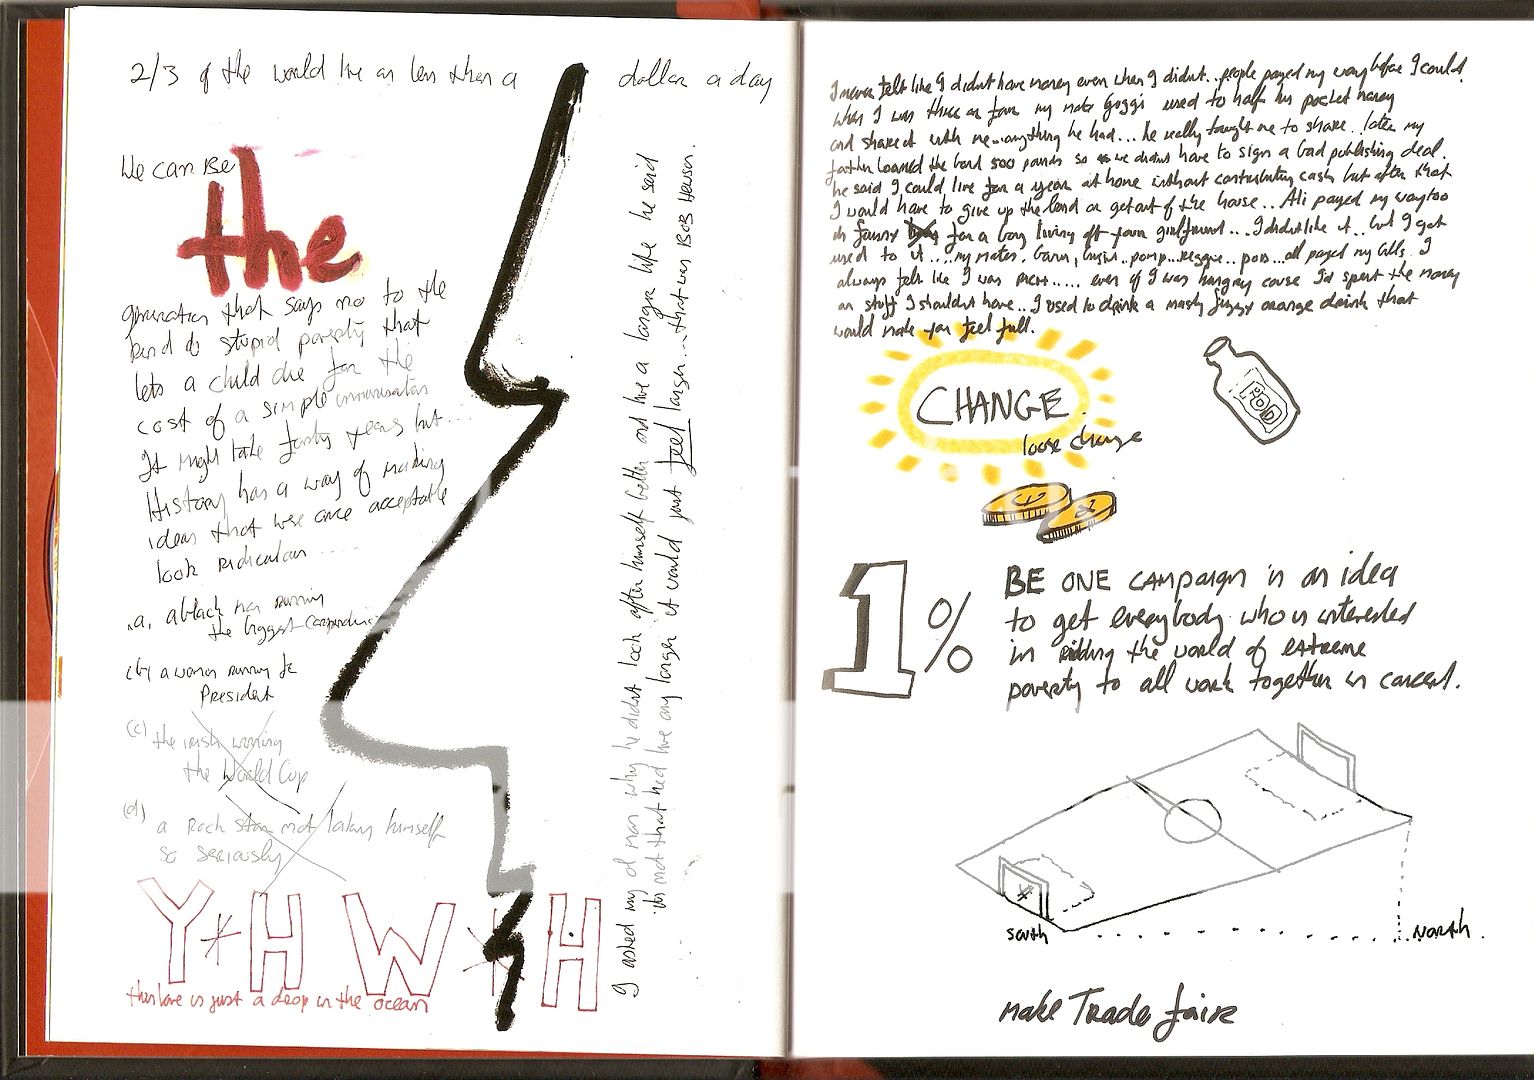 2/3 of the world live on less than a dollar a day
We can Be
the
generation that says no to the
kind of stupid poverty that
lets a child die for the
cost of a simple immunisation
It might take forty years but...
History has a way of making
ideas that were once acceptable
look ridiculous .....
.a, a black man running
the biggest
(b) a woman running for
President
(c) the irish winning
the World Cup
(d) a Rock star not taking himself
so seriously
Y*HW*H
this love is just a drop in the ocean
I asked my ol man why he didnt look after himself better and live a longer life he said
its not that hed live any longer it would just feel larger... that was BOB Hewson.
I never felt like I didnt have money even when I didnt.. people payed my way before I could.
when I was three or four my mate Guggi used to half his pocket money
and share it with me... anything he had... he really taught me to share. later my
father loaned the band 500 pounds so we didnt have to sign a bad publishing deal.
he said I could live for a year at home without contributing cash but after that
I would have to give up the band or get out of the house.. Ali payed my way too
its funny for a boy living off your girlfriend... I didnt like it.. but I got
used to it.... my mates, Gavin, Guggi.. pomp.. Reggie.. pod... all payed my bills. I
always felt like I was rich..... even if I was hungry cause I'd spent the money
on stuff I shouldnt have.. I used to drink a nasty fizzy orange drink that
would make you feel full.
CHANGE
loose change
1%
BE ONE CAMPAIGN is an idea
to get everybody who is interested
in ridding the world of extreme
poverty to all work together in concert.
south
North.
make Trade fair